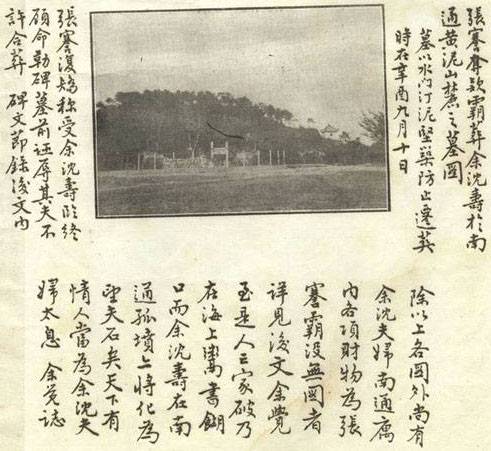 張謇奪欵霸葬余沈壽於南
通黃泥山麓之墓圖
墓以水門汀泥堅築防止遷葬
時在辛酉九月十日
張謇復矯称受余沈壽臨終
顧命勒碑墓前誣辱其夫不
許合葬 碑文節錄後文內
除以上各圖外尚有
余沈夫婦南通寓
內各項財物為張
謇霸没無圖者
詳見後文余覺
至是人亡家破乃
在海上鬻書餬
口而余沈壽在南
通孤墳上將化為
望夫石矣天下有
情人當為余沈夫
婦太息 余覺誌